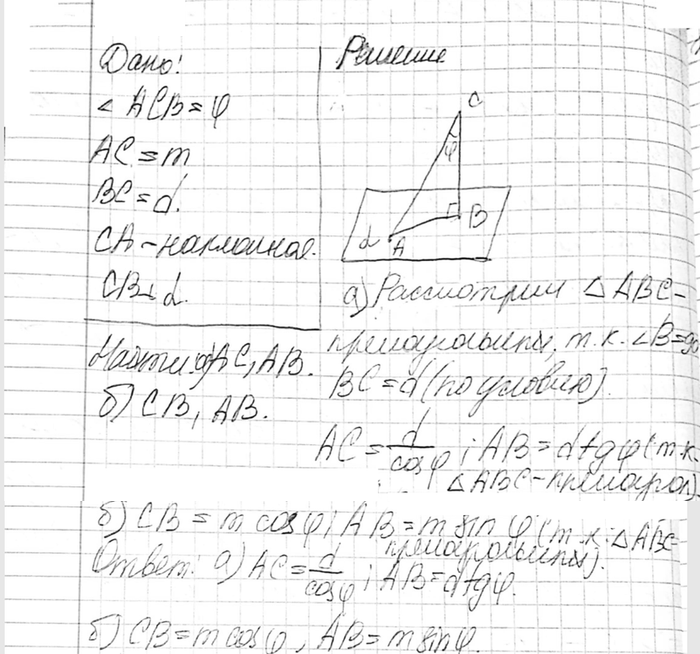 Дано:
∠ ACB = φ
AC = m
BC = d.
CA - наклонная.
CB ⊥ α.
Найти: а) AC, AB.
б) CB, AB.
Решение
C
φ
B
α A
а) Рассмотрим △ ABC -
прямоугольный, т.к. ∠B = 90
BC = d (по условию).
AC = d/cosφ ; AB = d tgφ (т.к.
△ABC - прямоугол)
б) CB = m cosφ ; AB = m sin φ (т.к. △ABC -
прямоугольный).
Ответ: а) AC = d/cosφ ; AB = d tgφ.
б) CB = m cosφ, AB = m sinφ.